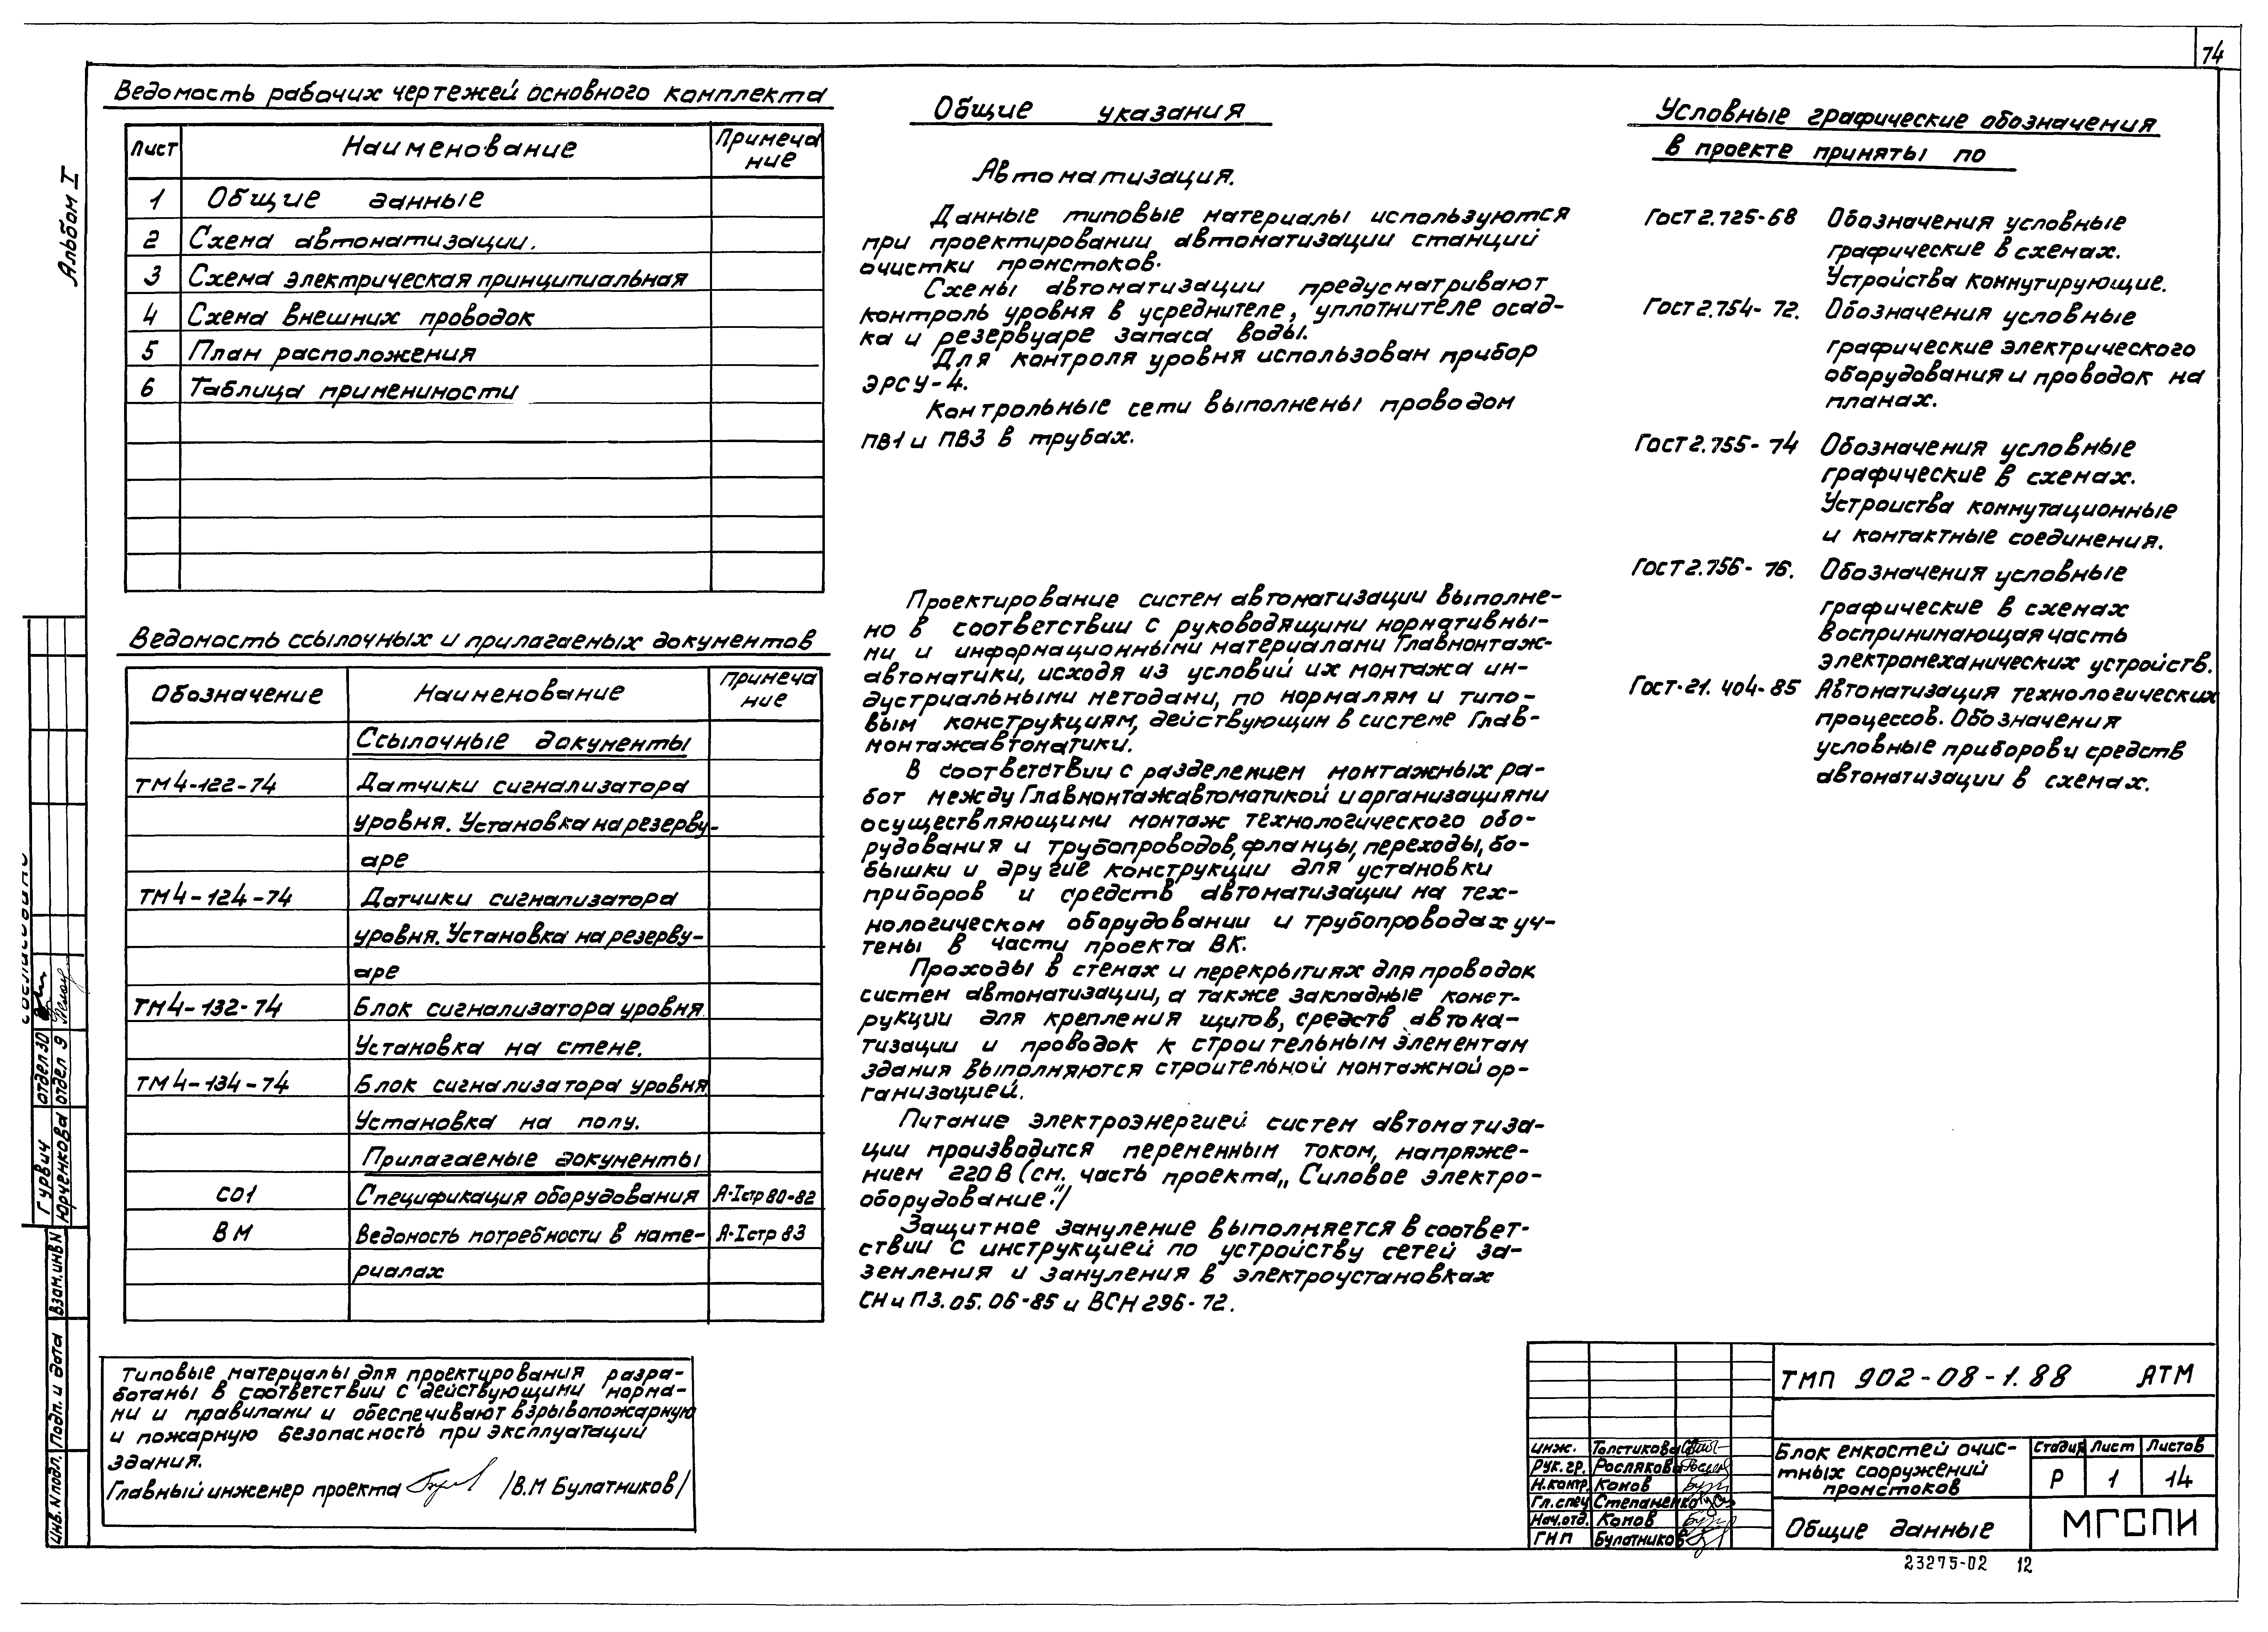 74
Альбом I
Ведомость рабочих чертежей основного комплекта
Лист Наименование Примеча
ние
1 Общие данные
2 Схема автоматизации.
3 Схема электрическая принципиальная
4 Схема внешних проводок
5 План расположения
6 Таблица применимости
Ведомость ссылочных и прилагаемых документов
Обозначение Наименование Примеча
ние
Ссылочные документы
ТМ4-122-74 Датчики сигнализатора
уровня. Установка на резерву-
аре
ТМ4-124-74 Датчики сигнализатора
уровня. Установка на резерву-
аре
ТМ4-132-74 Блок сигнализатора уровня.
Установка на стене.
ТМ4-134-74 Блок сигнализатора уровня
Установка на полу.
Прилагаемые документы
СО1 Спецификация оборудования А-I стр 80-82
ВМ Ведомость потребности в мате- А-I стр 83
риалах
Типовые материалы для проектирования разра-
ботаны в соответствии с действующими норма-
ми и правилами и обеспечивают взрывопожарную
и пожарную безопасность при эксплуатации
здания.
Главный инженер проекта /В.М Булатников/
Общие указания
Автоматизация.
Данные типовые материалы используются
при проектировании автоматизации станций
очистки промстоков.
Схемы автоматизации предусматривают
контроль уровня в усреднителе, уплотнителе осад-
ка и резервуаре запаса воды.
Для контроля уровня использован прибор
ЭРСУ-4.
Контрольные сети выполнены проводом
ПВ1 и ПВ3 в трубах.
Проектирование систем автоматизации выполне-
но в соответствии с руководящими нормативны-
ми и информационными материалами Главмонтаж-
автоматики, исходя из условий их монтажа ин-
дустриальными методами, по нормалям и типо-
вым конструкциям, действующим в системе Глав-
монтажавтоматики.
В соответствии с разделением монтажных ра-
бот между Главмонтажавтоматикой и организациями
осуществляющими монтаж технологического обо-
рудования и трубопроводов, фланцы, переходы, бо-
бышки и другие конструкции для установки
приборов и средств автоматизации на тех-
нологическом оборудовании и трубопроводах уч-
тены в части проекта ВК.
Проходы в стенах и перекрытиях для проводок
систем автоматизации, а также закладные конст-
рукции для крепления щитов, средств автома-
тизации и проводок к строительным элементам
здания выполняются строительной монтажной ор-
ганизацией.
Питание электроэнергией систем автоматиза-
ции производится переменным током, напряже-
нием 220В (см. часть проекта „Силовое электро-
оборудование."/
Защитное зануление выполняется в соответ-
ствии с инструкцией по устройству сетей за-
земления и зануления в электроустановках
СНиП 3.05.06-85 и ВСН 296-72.
Условные графические обозначения
в проекте приняты по
Гост 2.725-68 Обозначения условные
графические в схемах.
Устройства коммутирующие.
Гост 2.754-72. Обозначения условные
графические электрического
оборудования и проводок на
планах.
Гост 2.755-74 Обозначения условные
графические в схемах.
Устроиства коммутационные
и контактные соединения.
Гост 2.756-76. Обозначения условные
графические в схемах
воспринимающая часть
электромеханических устройств.
Гост-21.404-85 Автоматизация технологических
процессов. Обозначения
условные приборов и средств
автоматизации в схемах.
Гурвич отдел 30
Юрченкова отдел 9
Взам.инв N
Подп. и дата
Инв. N подл.
ТМП 902-08-1.88 АТМ
Инж. Толстикова
Рук. гр. Рослякова
Н.контр. Конов
Гл.спец Степаненко
Нач.отд. Конов
ГИП Булатников
Блок емкостей очис-
тных сооружений
промстоков
Стадия Лист Листов
Р 1 14
Общие данные
МГСПИ
23275-02 12